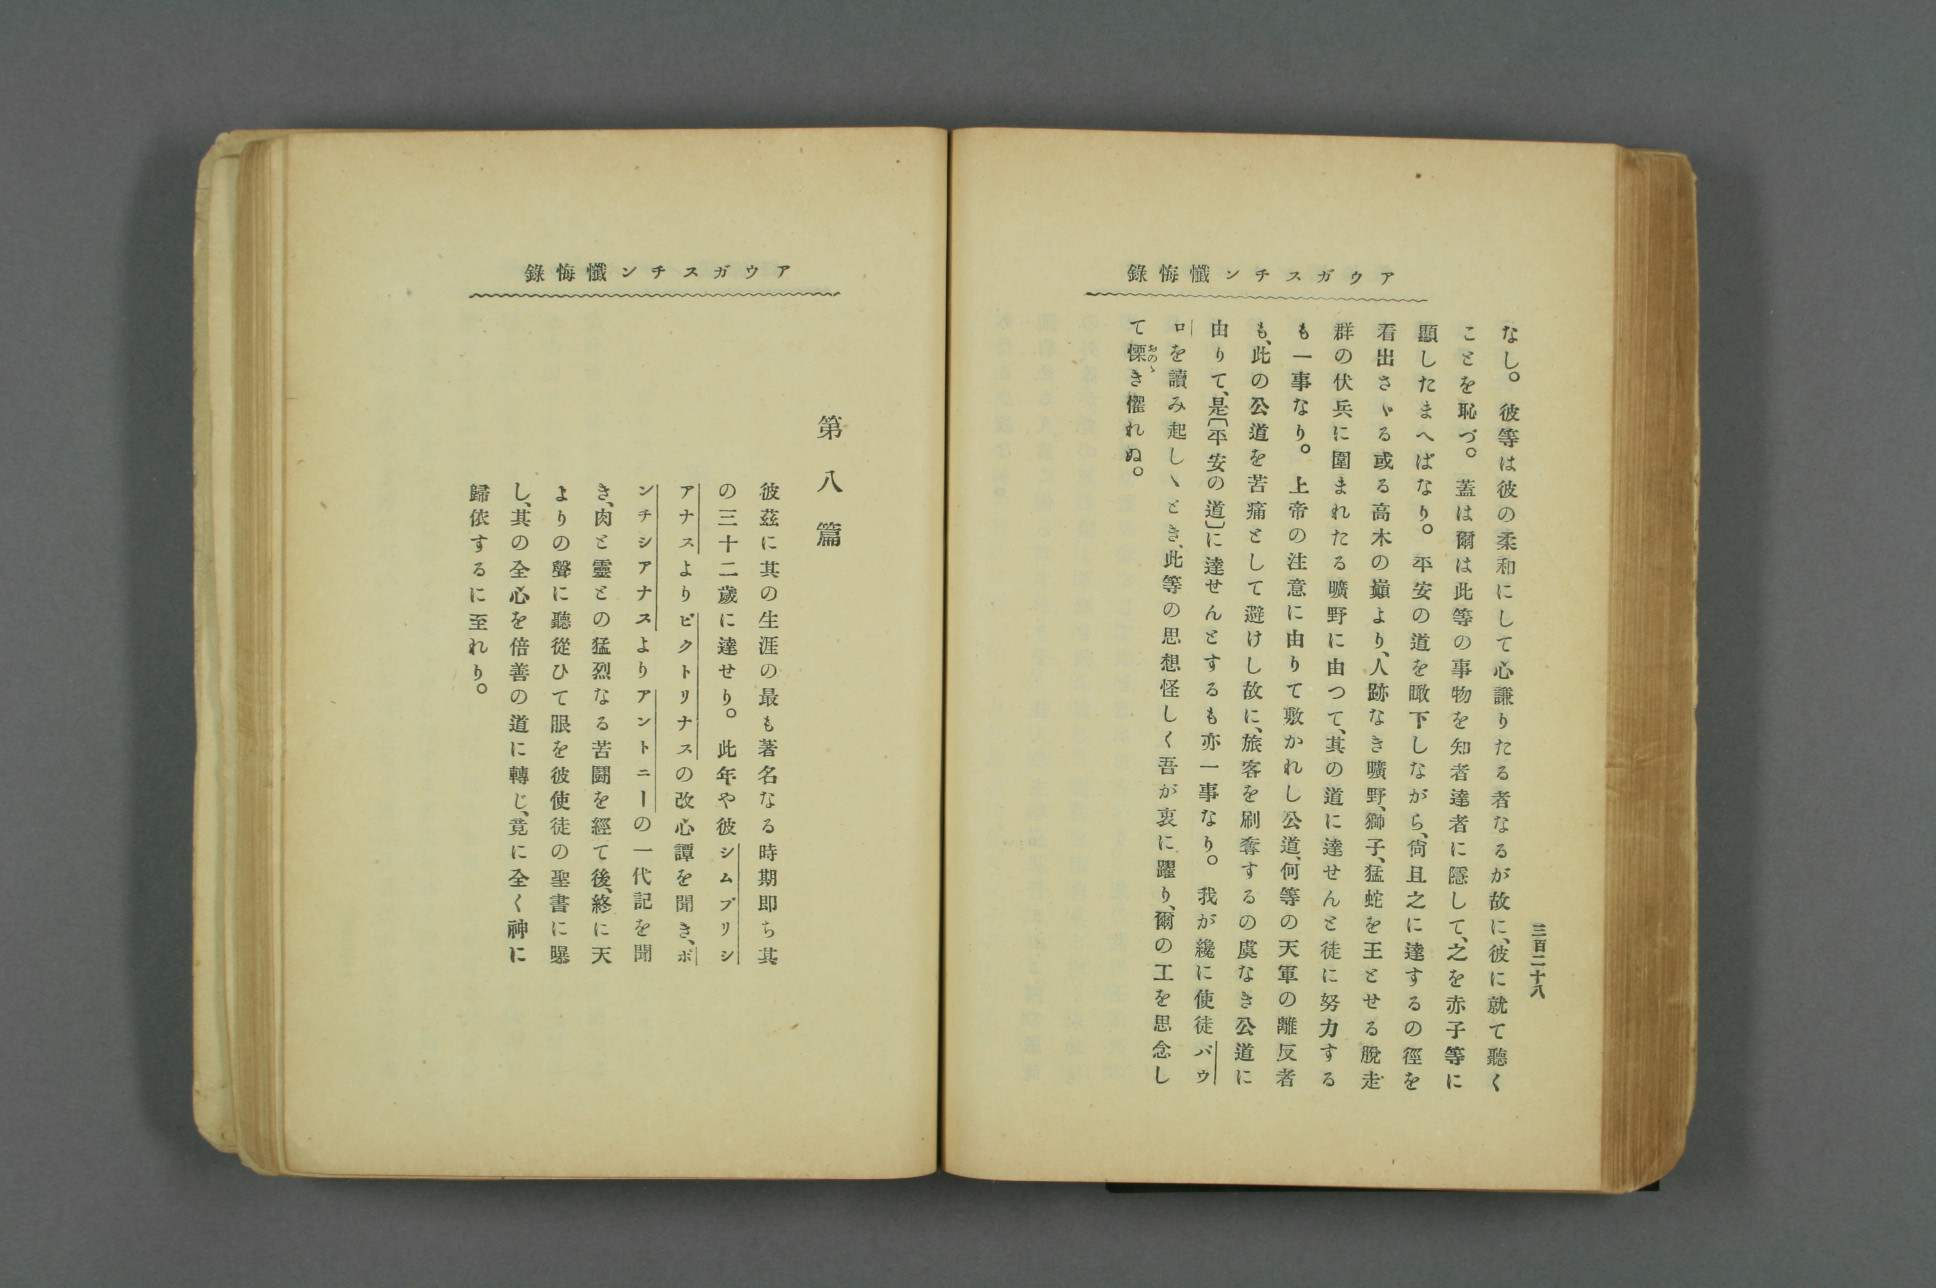 アウガスチン懺悔錄
三百二十八
なし。彼等は彼の柔和にして心謙りたる者なるが故に、彼に就て聽く
ことを恥づ。蓋は爾は此等の事物を知者達者に隱して、之を赤子等に
顯したまへばなり。平安の道を瞰下しながら、尙且之に達するの徑を
看出さゞる或る高木の巔より、人跡なき曠野、獅子、猛蛇を王とせる脫走
群の伏兵に圍まれたる曠野に由つて、其の道に達せんと徒に努力する
も一事なり。上帝の注意に由りて敷かれし公道、何等の天軍の離反者
も、此の公道を苦痛として避けし故に、旅客を刷奪するの虞なき公道に
由りて、是〔平安の道〕に達せんとするも亦一事なり。我が纔に使徒パウ
ロを讀み起しゝとき、此等の思想怪しく吾が衷に躍り、爾の工を思念し
て慄き懼れぬ。
おのゝ
アウガスチン懺悔錄
第八篇
彼茲に其の生涯の最も著名なる時期卽ち其
の三十二歲に達せり。此年や彼シムプリシ
アナスよりビクトリナスの改心譚を聞き、ポ
ンチシアナスよりアントニーの一代記を聞
き、肉と靈との猛烈なる苦鬪を經て後、終に天
よりの聲に聽從ひて眼を彼使徒の聖書に曝
し、其の全心を倍善の道に轉じ、竟に全く神に
歸依するに至れり。